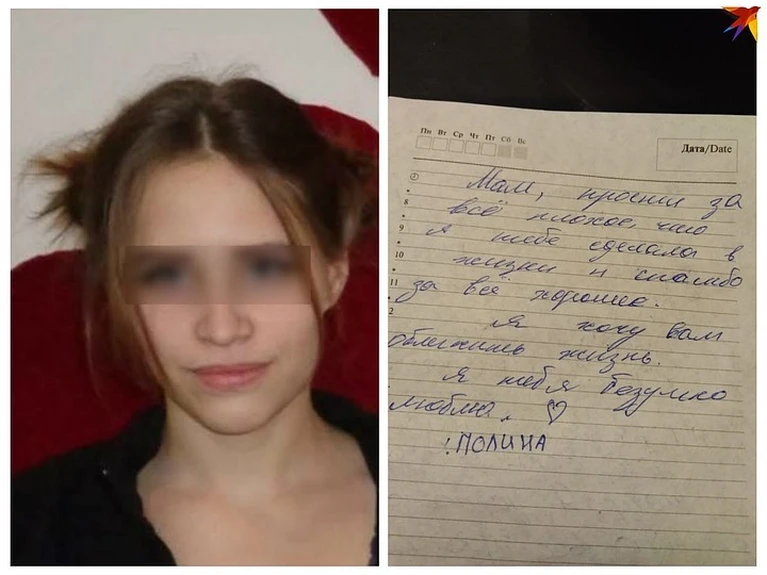 Пн Вт Ср Чт Пт Сб Вс
Дата/Date
Мам, прости за
8 всё плохое, что
9 я тебе сделала в
10 жизни и спасибо
11 за всё хорошее.
2 Я хочу вам
облегчить жизнь.
Я тебя безумно
люблю. ♡
!ПОЛИНА